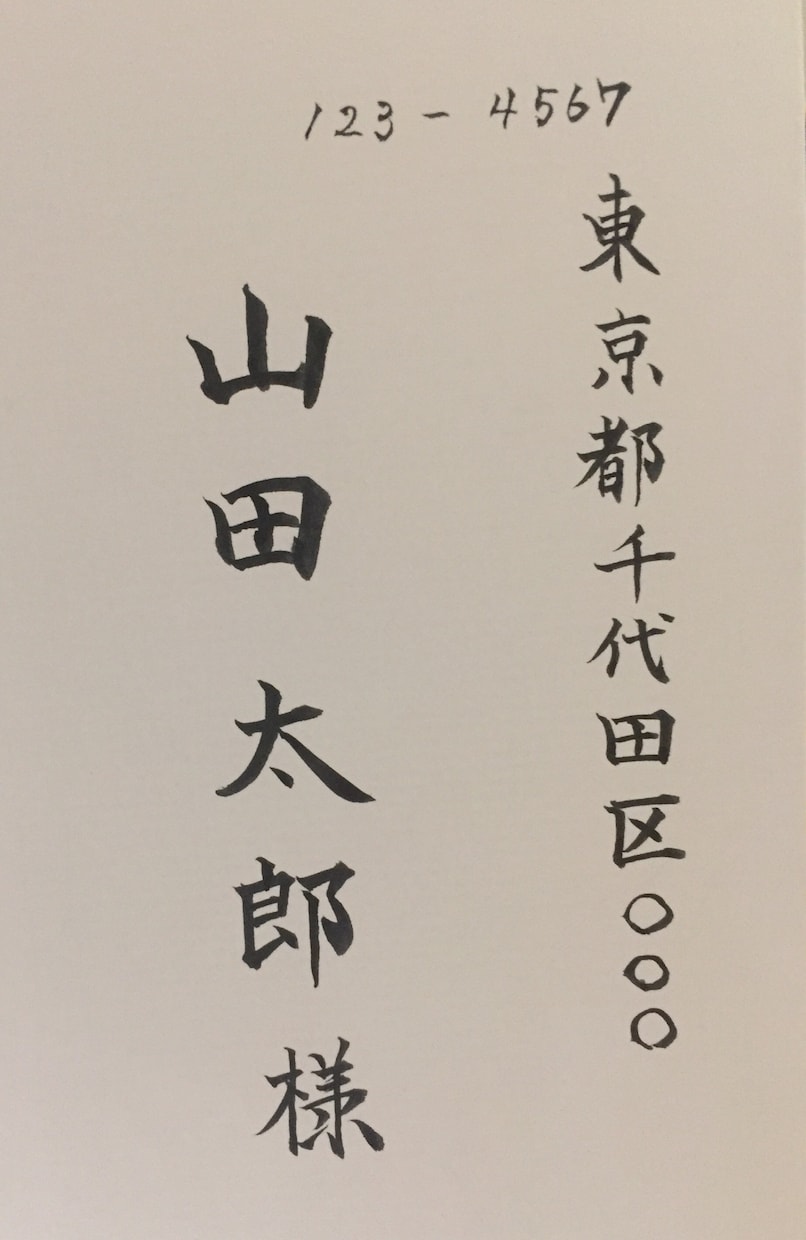 123-4567
東京都千代田区〇〇〇
山田太郎様